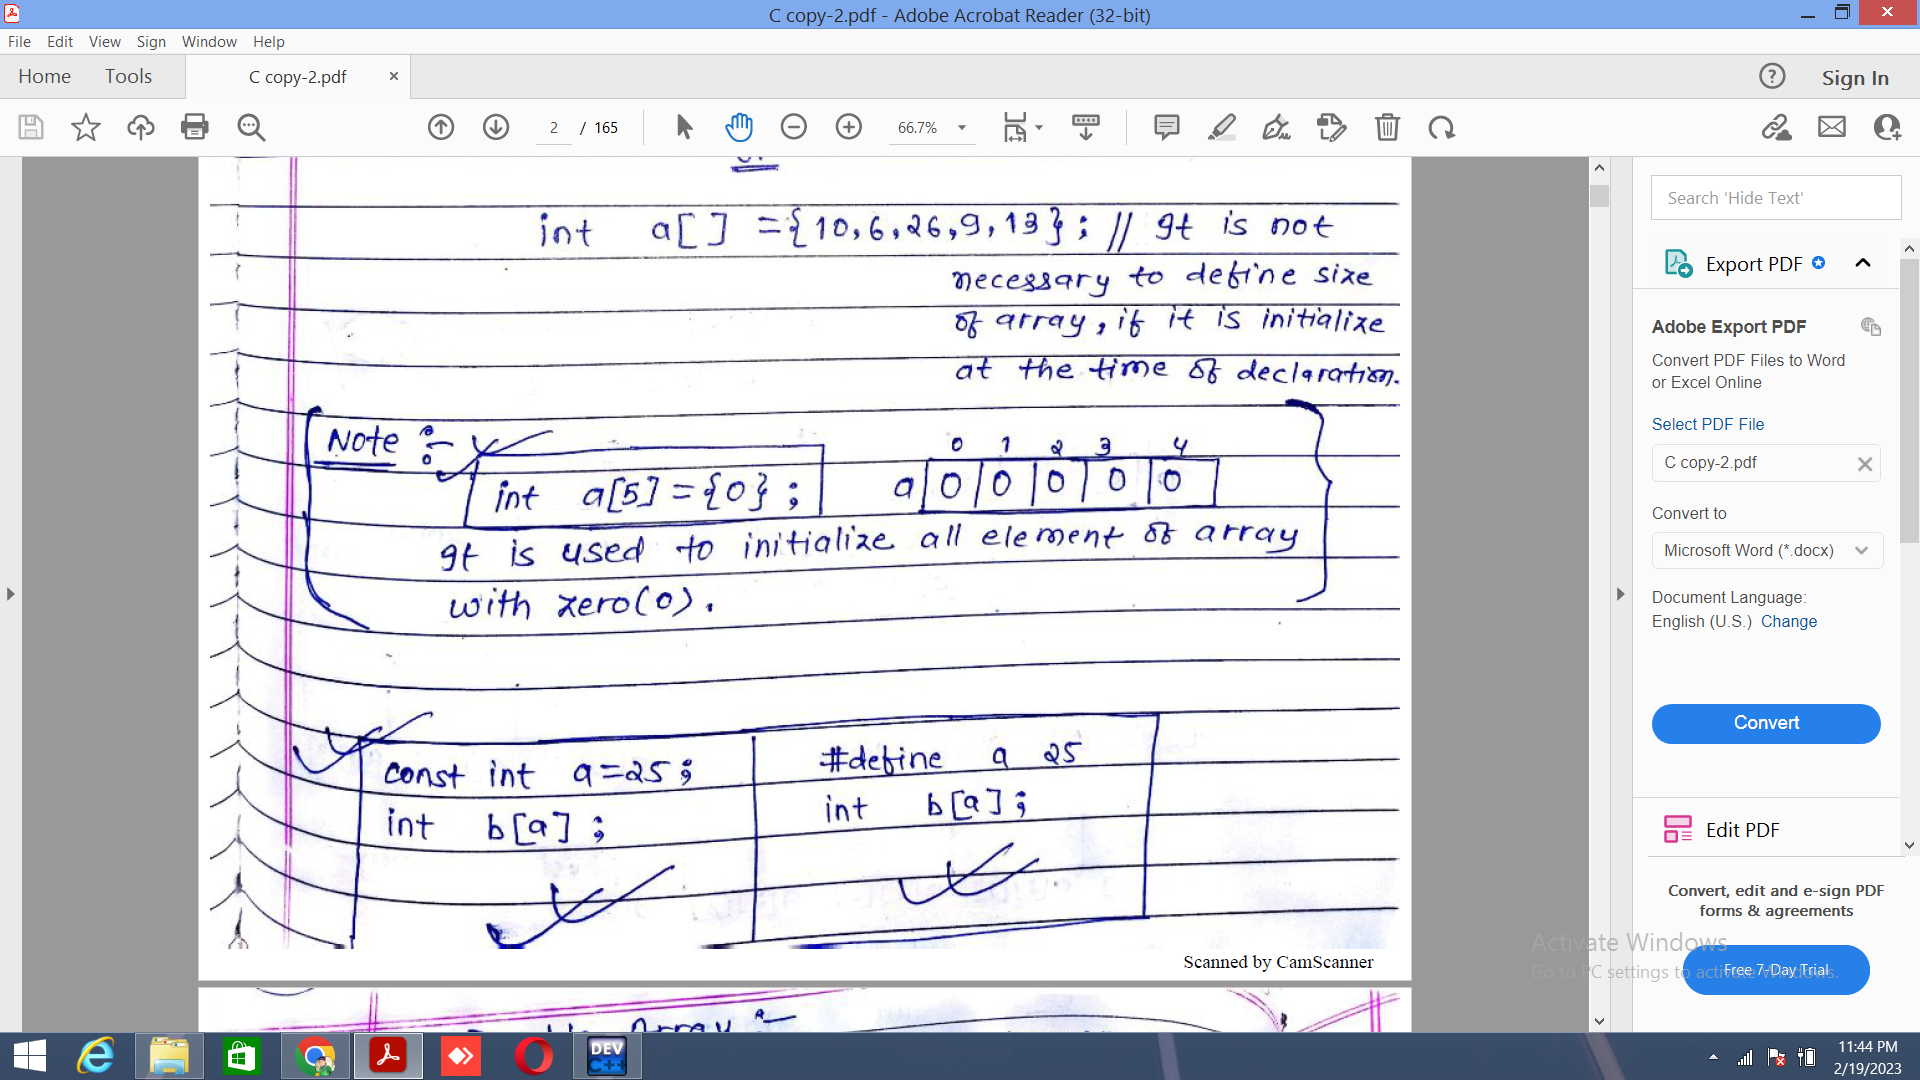 C copy-2.pdf - Adobe Acrobat Reader (32-bit)
File Edit View Sign Window Help
Home Tools C copy-2.pdf × Sign In
2 / 165 66.7%
int a[ ] ={10,6,26,9,13}; // It is not
necessary to define size
of array, if it is initialize
at the time of declaration.
Note :-
0 1 2 3 4
int a[5]={0}; a 0 0 0 0 0
It is used to initialize all element of array
with zero(0).
const int a=25; #define a 25
int b[a]; int b[a];
Scanned by CamScanner
Array :-
Search 'Hide Text'
Export PDF
Adobe Export PDF
Convert PDF Files to Word
or Excel Online
Select PDF File
C copy-2.pdf
Convert to
Microsoft Word (*.docx)
Document Language:
English (U.S.) Change
Convert
Edit PDF
Convert, edit and e-sign PDF
forms & agreements
Free 7-Day Trial
Activate Windows
Go to PC settings to activate Windows.
DEV
C++
11:44 PM
2/19/2023